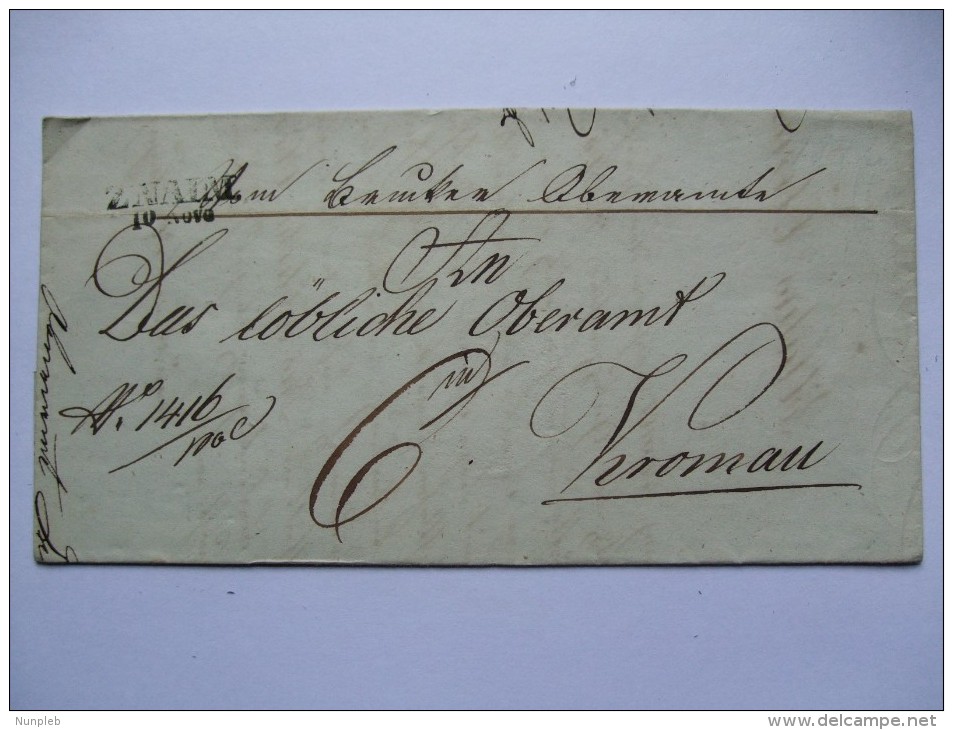 ZNAIM
10. NOVB
Vom Brucker Oberamte
An
Das löbliche Oberamt
in
No. 1416
6
Kromau
Nunpleb
www.delcampe.net